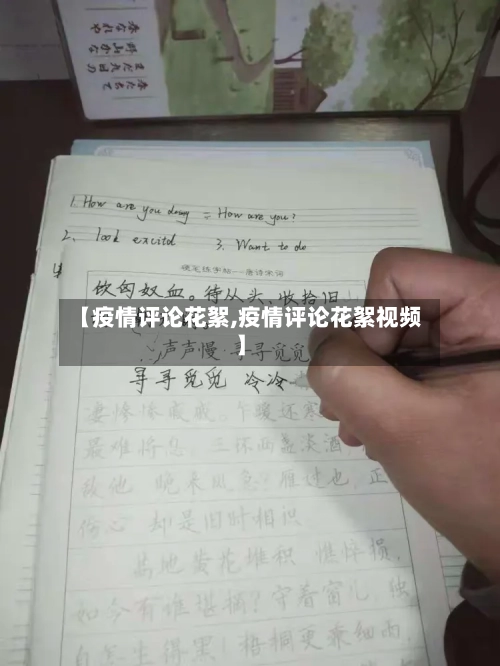 1. How are you doing = How are you?
2. look excitd 3. Want to do
硬笔练字帖——唐诗宋词
饮匈奴血。待从头、收拾旧
【疫情评论花絮,疫情评论花絮视频
】
声声慢·寻寻觅觅
寻寻觅觅 冷冷
妻惨惨戚戚。乍暖还寒
最难将息。三杯两盏淡酒
敌他 晚来风急?雁过也,正
伤心 却是旧时相识
地黄花堆积 憔悴损,
如今有谁堪摘?守着窗儿,独
自怎生得黑!梧桐更兼细雨,